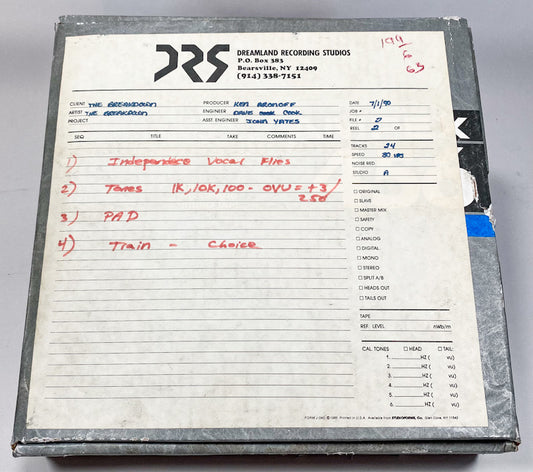 DRS
DREAMLAND RECORDING STUDIOS
P.O. Box 383
Bearsville, NY 12409
(914) 338-7151
199
6
63
CLIENT THE BREAKDOWN PRODUCER KEN ARONOFF DATE 7/1/90
ARTIST THE BREAKDOWN ENGINEER DAVE COOK COOK JOB #
PROJECT ASST ENGINEER JOHN YATES FILE # D
REEL 2 OF
SEQ. TITLE TAKE COMMENTS TIME
TRACKS 24
SPEED 30 IPS
NOISE RED.
STUDIO A
1) Independece Vocal Flies
2) Tones 1K, 10K, 100 - OVU = +3/
250
3) PAD
4) Train - Choice
ORIGINAL
SLAVE
MASTER MIX
SAFETY
COPY
ANALOG
DIGITAL
MONO
STEREO
SPLIT A/B
HEADS OUT
TAILS OUT
TAPE
REF. LEVEL nWb/m
CAL. TONES HEAD TAIL:
1. HZ ( vu)
2. HZ ( vu)
3. HZ ( vu)
4. HZ ( vu)
5. HZ ( vu)
6. HZ ( vu)
Printed in U.S.A. Available from STUDIOFORMS, Co.